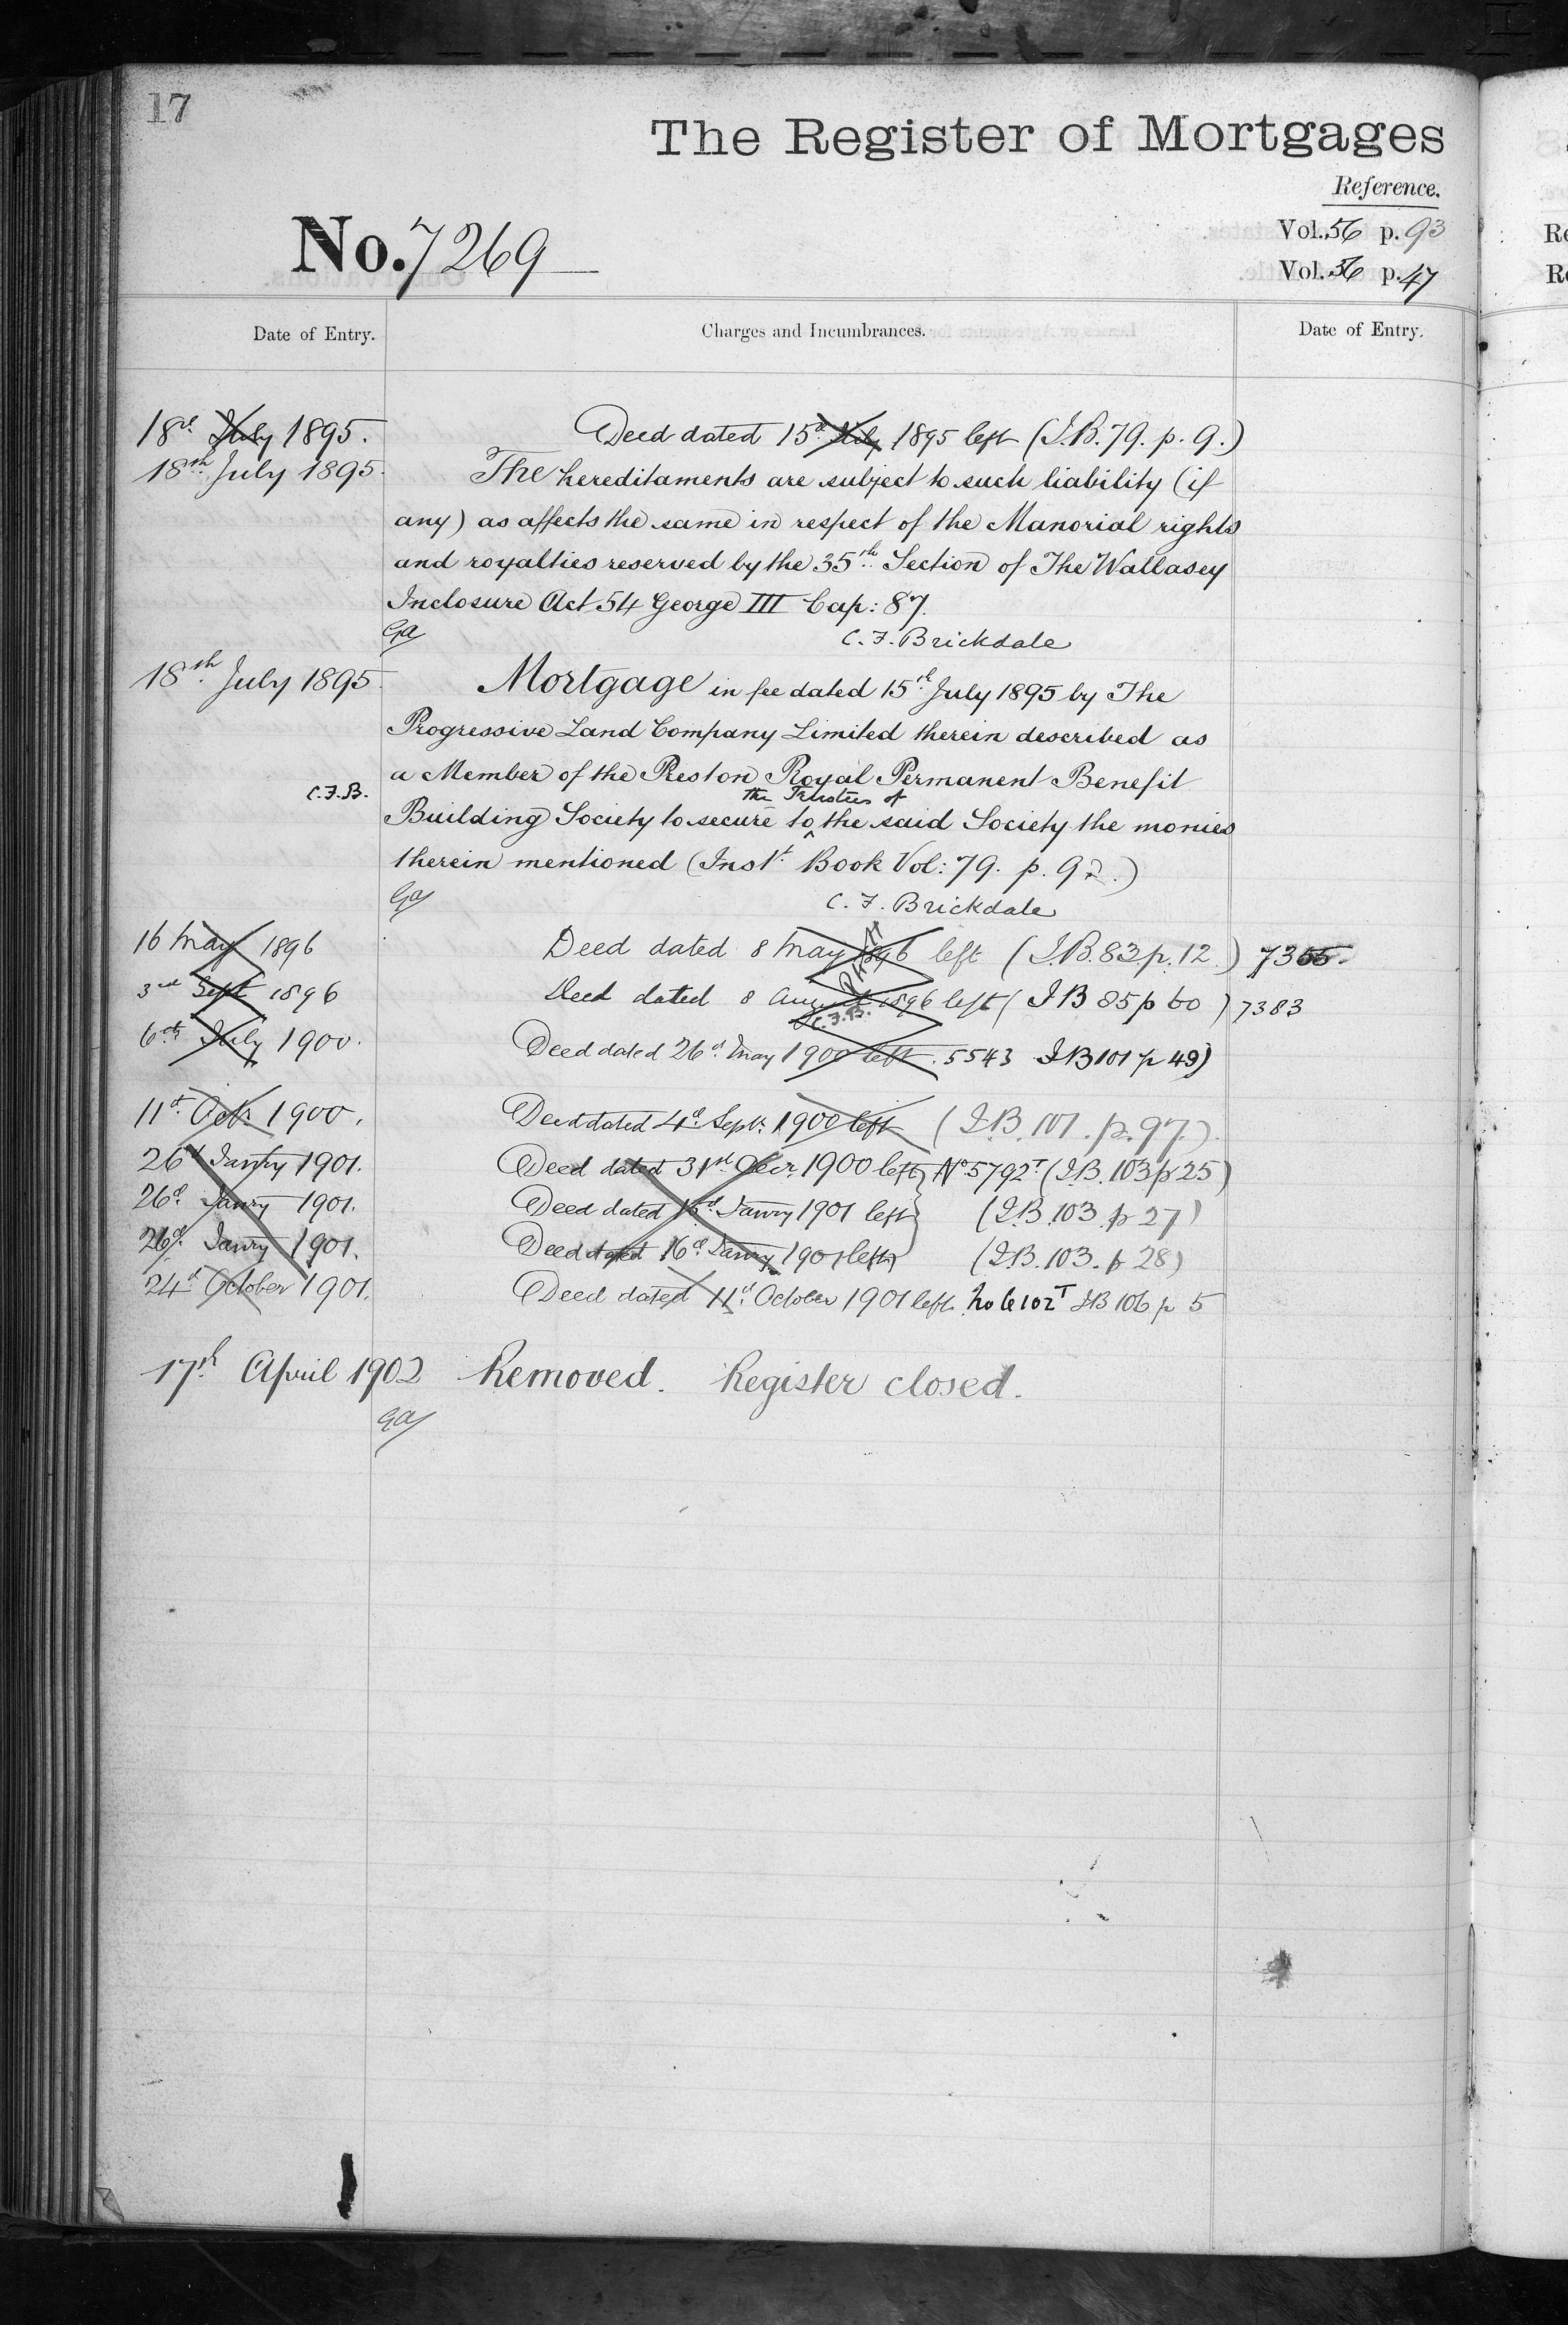 17
The Register of Mortgages
Reference.
No. 7269
Vol. 56 p. 93
Vol. 56 p. 47
Date of Entry. Charges and Incumbrances. Date of Entry.
18th July 1895. Deed dated 15th July 1895 left (I.B. 79. p. 9.)
18th July 1895. The hereditaments are subject to such liability (if
any) as affects the same in respect of the Manorial rights
and royalties reserved by the 35th Section of The Wallasey
Inclosure Act 54 George III Cap: 87.
GA C. F. Brickdale
18th July 1895. Mortgage in fee dated 15th July 1895 by The
Progressive Land Company Limited therein described as
a Member of the Preston Royal Permanent Benefit
C.F.B. the Trustees of
Building Society to secure to ^ the said Society the monies
therein mentioned (Inst. Book Vol: 79. p. 92.)
GA C. F. Brickdale
16 May 1896 Deed dated 8 May 1896 left (I.B. 83 p. 12) 7355
3rd Sept 1896 Deed dated 8 August 1896 left (I B 85 p 60) 7383
C.F.B.
6th July 1900. Deed dated 26th May 1900 left. 5543 I B 101 p 49)
11th Octr. 1900. Deed dated 4th Septr. 1900 left (I.B. 101. p. 97.)
26th Janry 1901. Deed dated 31st Decr. 1900 left No. 5792T (I.B. 103 p 25)
26th Janry 1901. Deed dated 15th Janry 1901 left (I.B. 103 p 27)
26th Janry 1901. Deed dated 16th Janry 1901 left (I.B. 103. p 28)
24th October 1901. Deed dated 11th October 1901 left. No 6102T I B 106 p 5
17th April 1902 Removed. Register closed.
GA